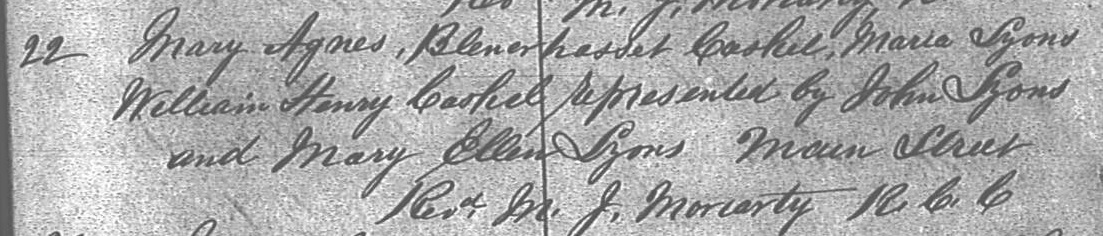 Rev M. J. Moriarty
22 Mary Agnes, Blenerhasset Cashel, Maria Lyons
William Henry Cashel represented by John Lyons
and Mary Ellen Lyons Main Street
Revd. M. J. Moriarty R. C. C